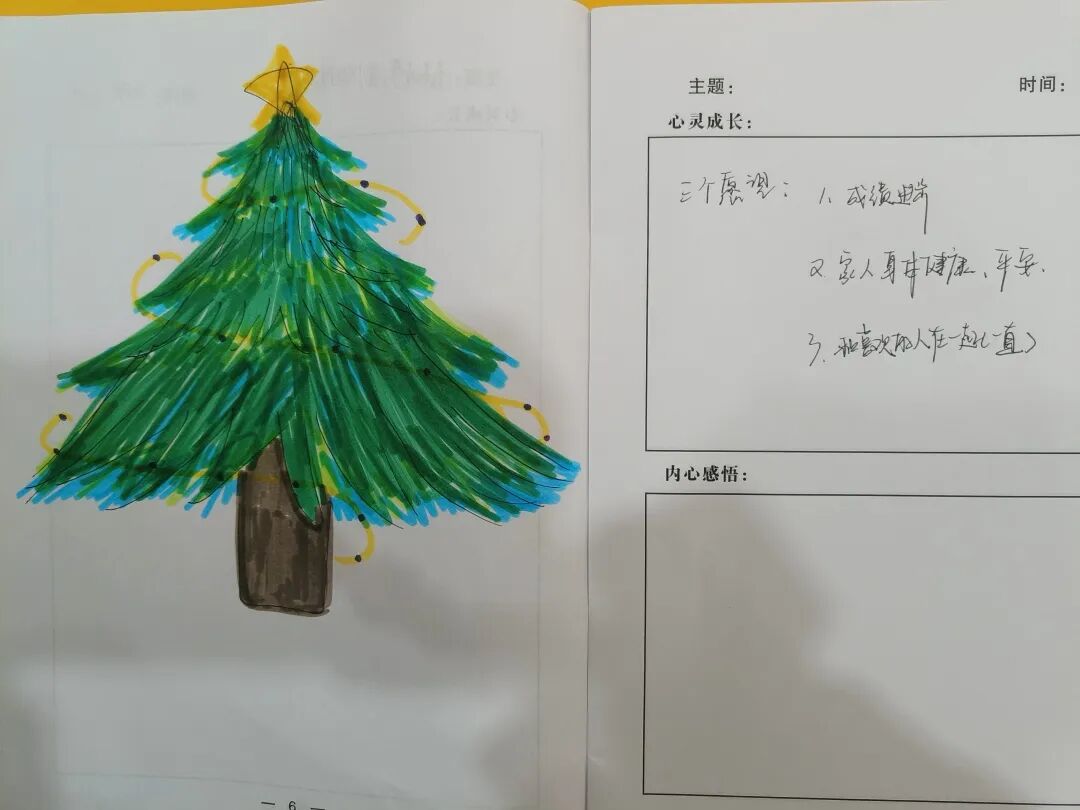 主题： 时间：
心灵成长：
三个愿望： 1、成绩进步
2、家人身体健康、平安.
3、和喜欢的人在一起(一直)
内心感悟：
— 6 —